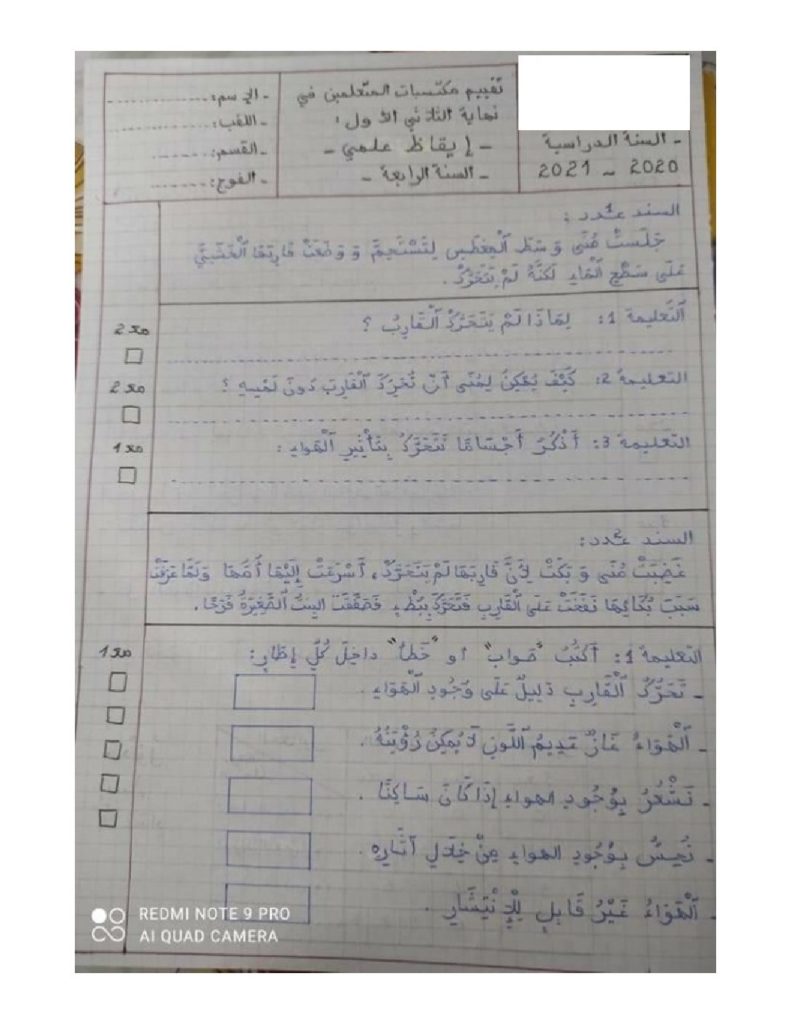 - السنة الدراسية
2020 - 2021
تقييم مكتسبات المتعلمين في
نهاية الثلاثي الأول:
- إيقاظ علمي -
- السنة الرابعة -
- الإسم: ............
- اللقب: ............
- القسم: ............
- الفوج: ............
السند عدد 1:
جَلَسَتْ مُنَى وَسَطَ الْمِغْطَسِ لِتَسْتَحِمَّ وَوَضَعَتْ قَارِبَهَا الْخَشَبِيَّ
عَلَى سَطْحِ الْمَاءِ لَكِنَّهُ لَمْ يَتَحَرَّكْ.
التَّعليمة 1: لِمَاذَا لَمْ يَتَحَرَّكْ الْقَارِبُ ؟
مع 2
التعليمة 2: كَيْفَ يُمْكِنُ لِمُنَى أَنْ تُحَرِّكَ الْقَارِبَ دُونَ لَمْسِهِ ؟
مع 2
التعليمة 3: أَذْكُرُ أَجْسَامًا تَتَحَرَّكُ بِتَأْثِيرِ الْهَوَاءِ:
مع 1
السند عدد 2:
غَضِبَتْ مُنَى وَ بَكَتْ لِأَنَّ قَارِبَهَا لَمْ يَتَحَرَّكْ، أَسْرَعَتْ إِلَيْهَا أُمُّهَا وَلَمَّا عَرَفَتْ
سَبَبَ بُكَائِهَا نَفَخَتْ عَلَى الْقَارِبِ فَتَحَرَّكَ بِبُطْءٍ فَصَفَّقَتْ الْبِنْتُ الصَّغِيرَةُ فَرَحًا.
التعليمة 1: أَكْتُبُ "صَوَاب" أو "خَطَأ" دَاخِلَ كُلِّ إِطَارٍ:
مع 1
- تَحَرُّكُ الْقَارِبِ دَلِيلٌ عَلَى وُجُودِ الْهَوَاءِ.
- الْهَوَاءُ غَازٌ عَدِيمُ اللَّوْنِ لَا يُمْكِنُ رُؤْيَتُهُ.
- نَشْعُرُ بِوُجُودِ الهواءِ إِذَا كَانَ سَاكِنًا.
- نُحِسُّ بِوُجُودِ الهواءِ مِنْ خِلَالِ آثَارِهِ.
- الْهَوَاءُ غَيْرُ قَابِلٍ لِلْإِنْتِشَارِ.
REDMI NOTE 9 PRO
AI QUAD CAMERA